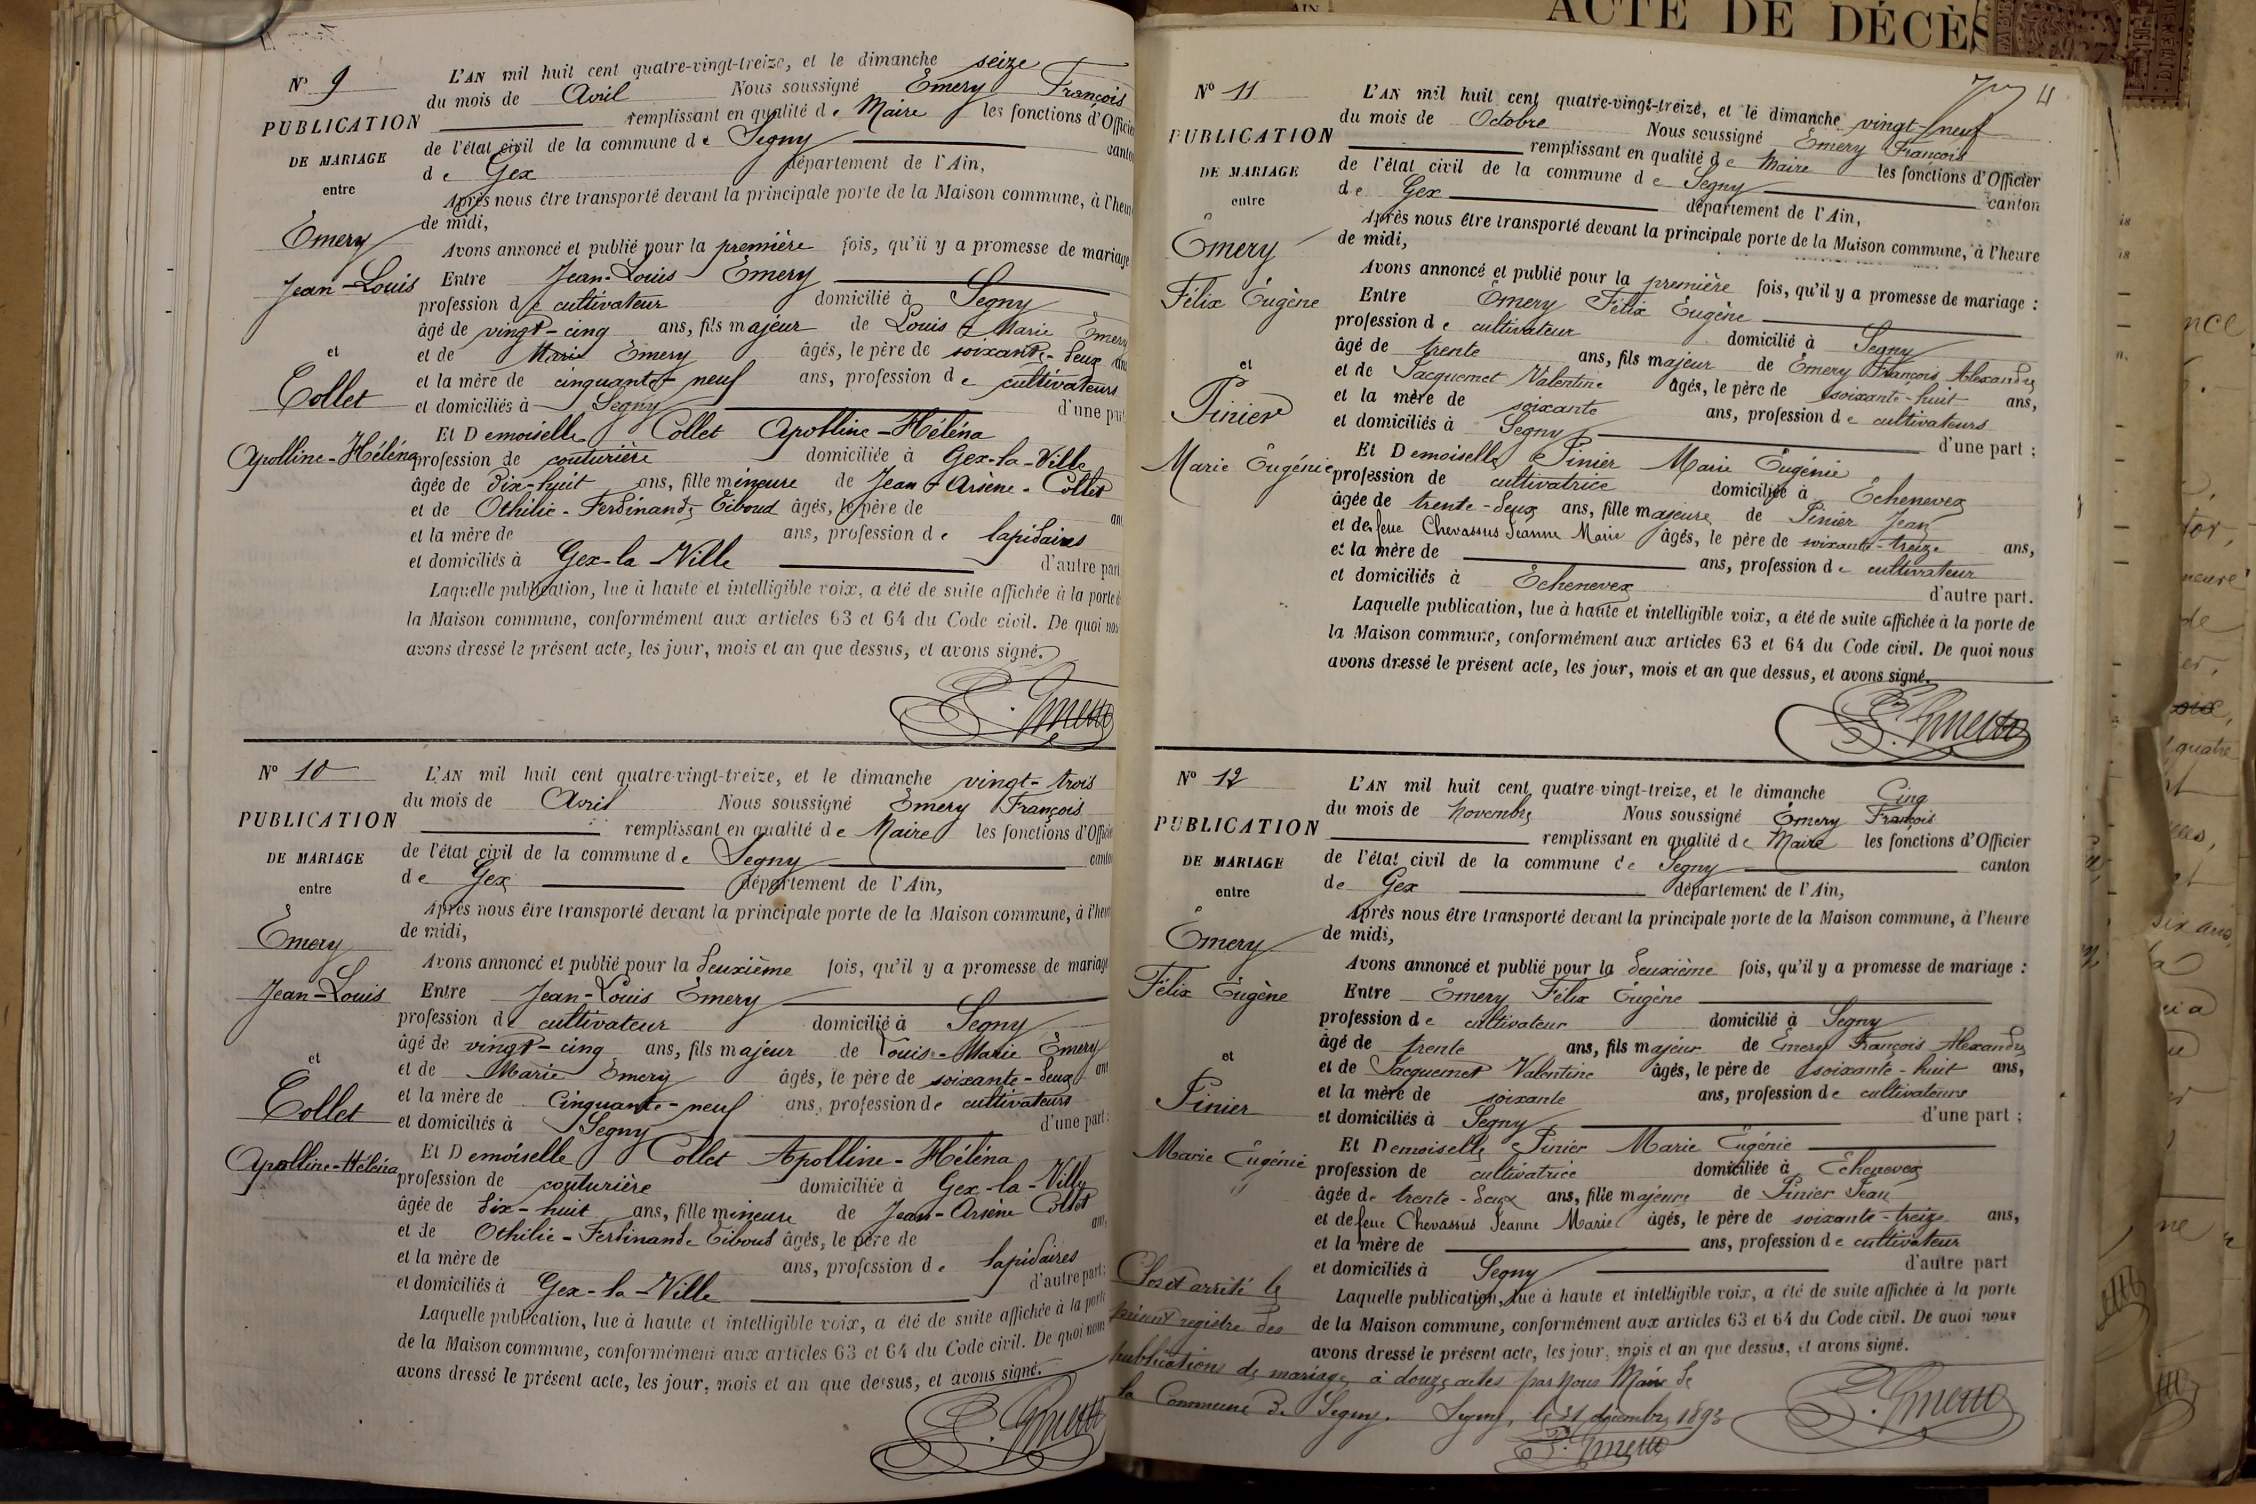 ACTE DE DÉCÈS
N° 9
L'AN mil huit cent quatre-vingt-treize, et le dimanche seize
du mois de Avril Nous soussigné Emery François
PUBLICATION
remplissant en qualité de Maire les fonctions d'Officier
de l'état civil de la commune de Segny canton
DE MARIAGE
de Gex département de l'Ain,
entre
Après nous être transporté devant la principale porte de la Maison commune, à l'heure
de midi,
Emery
Avons annoncé et publié pour la première fois, qu'il y a promesse de mariage
Jean-Louis
Entre Jean-Louis Emery
profession de cultivateur domicilié à Segny
âgé de vingt-cinq ans, fils majeur de Louis Marie Emery
et
et de Marie Emery âgés, le père de soixante-deux ans
et la mère de cinquante-neuf ans, profession de cultivateurs
Collet
et domiciliés à Segny d'une part
Et Demoiselle Collet Apolline-Héléna
Apolline-Héléna
profession de couturière domiciliée à Gex-la-Ville
âgée de dix-huit ans, fille mineure de Jean Arsène Collet
et de Othilie-Ferdinande Tiboud âgés, le père de ans
et la mère de ans, profession de lapidaires
et domiciliés à Gex-la-Ville d'autre part
Laquelle publication, lue à haute et intelligible voix, a été de suite affichée à la porte de
la Maison commune, conformément aux articles 63 et 64 du Code civil. De quoi nous
avons dressé le présent acte, les jour, mois et an que dessus, et avons signé.
F. Emery
N° 10
L'AN mil huit cent quatre-vingt-treize, et le dimanche vingt-trois
du mois de Avril Nous soussigné Emery François
PUBLICATION
remplissant en qualité de Maire les fonctions d'Officier
de l'état civil de la commune de Segny canton
DE MARIAGE
de Gex département de l'Ain,
entre
Après nous être transporté devant la principale porte de la Maison commune, à l'heure
de midi,
Emery
Avons annoncé et publié pour la deuxième fois, qu'il y a promesse de mariage
Jean-Louis
Entre Jean-Louis Emery
profession de cultivateur domicilié à Segny
âgé de vingt-cinq ans, fils majeur de Louis-Marie Emery
et
et de Marie Emery âgés, le père de soixante-deux ans
et la mère de Cinquante-neuf ans, profession de cultivateurs
Collet
et domiciliés à Segny d'une part;
Et Demoiselle Collet Apolline-Héléna
Apolline-Héléna
profession de couturière domiciliée à Gex-la-Ville
âgée de dix-huit ans, fille mineure de Jean-Arsène Collet
et de Othilie-Ferdinande Tiboud âgés, le père de ans,
et la mère de ans, profession de lapidaires
et domiciliés à Gex-la-Ville d'autre part;
Laquelle publication, lue à haute et intelligible voix, a été de suite affichée à la porte
de la Maison commune, conformément aux articles 63 et 64 du Code civil. De quoi nous
avons dressé le présent acte, les jour, mois et an que dessus, et avons signé.
F. Emery
4
N° 11
L'AN mil huit cent quatre-vingt-treize, et le dimanche vingt-neuf
du mois de Octobre Nous soussigné Emery François
PUBLICATION
remplissant en qualité de Maire les fonctions d'Officier
de l'état civil de la commune de Segny canton
DE MARIAGE
de Gex département de l'Ain,
entre
Après nous être transporté devant la principale porte de la Maison commune, à l'heure
de midi,
Emery
Avons annoncé et publié pour la première fois, qu'il y a promesse de mariage :
Félix Eugène
Entre Emery Félix Eugène
profession de cultivateur domicilié à Segny
âgé de trente ans, fils majeur de Emery François Alexandre
et
et de Jacquemet Valentine âgés, le père de soixante-huit ans,
et la mère de soixante ans, profession de cultivateurs
Pinier
et domiciliés à Segny d'une part ;
Et Demoiselle Pinier Marie Eugénie
Marie Eugénie
profession de cultivatrice domiciliée à Echenevex
âgée de trente-deux ans, fille majeure de Pinier Jean
et de feue Chevassus Jeanne Marie âgés, le père de soixante-treize ans,
et la mère de ans, profession de cultivateur
et domiciliés à Echenevex d'autre part.
Laquelle publication, lue à haute et intelligible voix, a été de suite affichée à la porte de
la Maison commune, conformément aux articles 63 et 64 du Code civil. De quoi nous
avons dressé le présent acte, les jour, mois et an que dessus, et avons signé.
F. Emery
N° 12
L'AN mil huit cent quatre-vingt-treize, et le dimanche Cinq
du mois de Novembre Nous soussigné Emery François
PUBLICATION
remplissant en qualité de Maire les fonctions d'Officier
de l'état civil de la commune de Segny canton
DE MARIAGE
de Gex département de l'Ain,
entre
Après nous être transporté devant la principale porte de la Maison commune, à l'heure
de midi,
Emery
Avons annoncé et publié pour la deuxième fois, qu'il y a promesse de mariage :
Félix Eugène
Entre Emery Félix Eugène
profession de cultivateur domicilié à Segny
âgé de trente ans, fils majeur de Emery François Alexandre
et
et de Jacquemet Valentine âgés, le père de soixante-huit ans,
et la mère de soixante ans, profession de cultivateurs
Pinier
et domiciliés à Segny d'une part ;
Et Demoiselle Pinier Marie Eugénie
Marie Eugénie
profession de cultivatrice domiciliée à Echenevex
âgée de trente-deux ans, fille majeure de Pinier Jean
et de feue Chevassus Jeanne Marie âgés, le père de soixante-treize ans,
et la mère de ans, profession de cultivateur
et domiciliés à Segny d'autre part
Laquelle publication, lue à haute et intelligible voix, a été de suite affichée à la porte
de la Maison commune, conformément aux articles 63 et 64 du Code civil. De quoi nous
avons dressé le présent acte, les jour, mois et an que dessus, et avons signé.
F. Emery
Clos et arrêté le
présent registre des
publications de mariage à douze actes par Nous Maire de
la Commune de Segny. Segny, le 31 décembre 1893
F. Emery